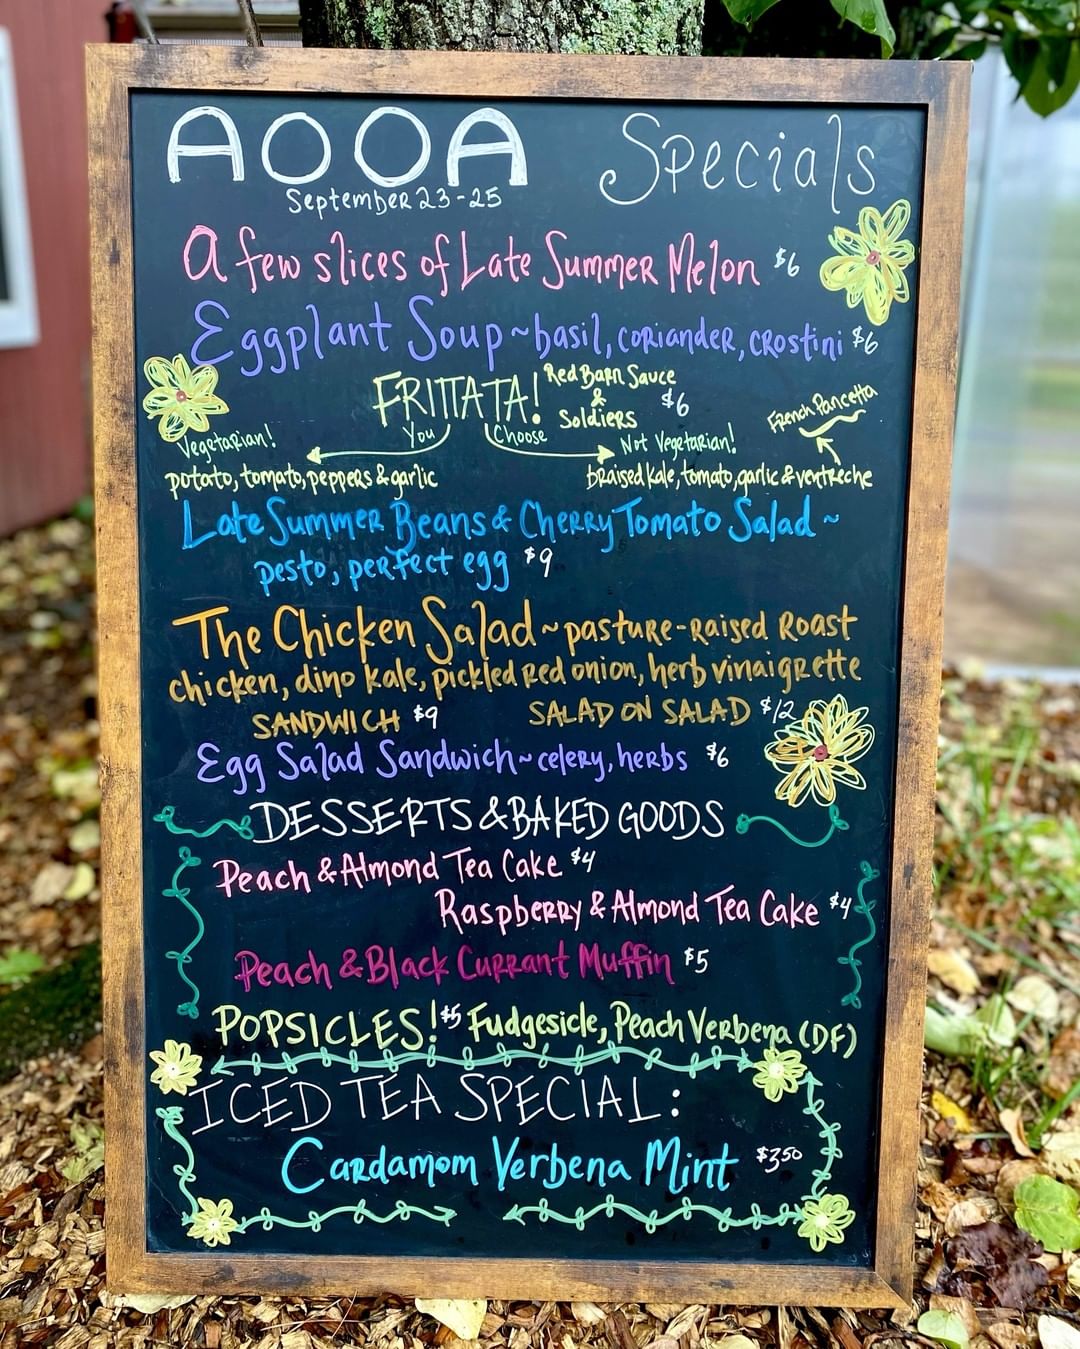 AOOA Specials
September 23-25
A few slices of Late Summer Melon $6
Eggplant Soup ~ basil, coriander, crostini $6
FRITTATA! Red Barn Sauce & Soldiers $6
You Choose
Vegetarian!
potato, tomato, peppers & garlic
Not Vegetarian!
braised kale, tomato, garlic & ventreche
French Pancetta
Late Summer Beans & Cherry Tomato Salad ~
pesto, perfect egg $9
The Chicken Salad ~ pasture-raised roast
chicken, dino kale, pickled red onion, herb vinaigrette
SANDWICH $9 SALAD ON SALAD $12
Egg Salad Sandwich ~ celery, herbs $6
DESSERTS & BAKED GOODS
Peach & Almond Tea Cake $4
Raspberry & Almond Tea Cake $4
Peach & Black Currant Muffin $5
POPSICLES! $5 Fudgesicle, Peach Verbena (DF)
ICED TEA SPECIAL:
Cardamom Verbena Mint $350